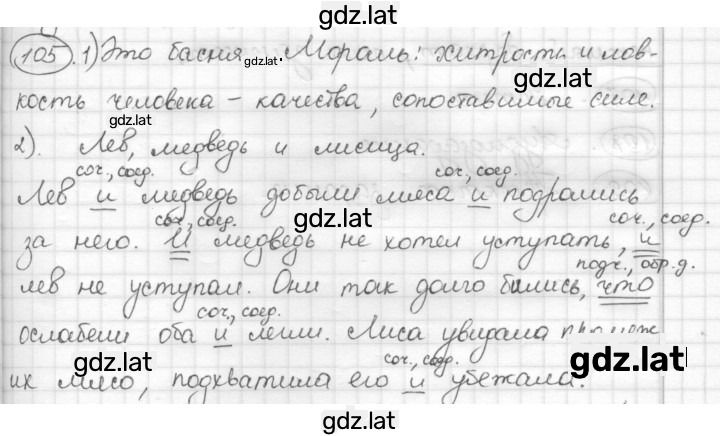 gdz.lat
105. 1) Это басня. Мораль: хитрость и лов-
gdz.lat
gdz.lat
кость человека – качества, сопоставимые силе.
gdz.lat
2). Лев, медведь и лисица.
соч., соед. соч., соед.
Лев и медведь добыли мяса и подрались
соч., соед. gdz.lat соч., соед.
за него. И медведь не хотел уступать, и
подч., обр.д.
лев не уступал. Они так долго бились, что
соч., соед.
ослабели оба и легли. Лиса увидала
gdz.lat
соч., соед.
их мясо, подхватила его и убежала.
gdz.lat